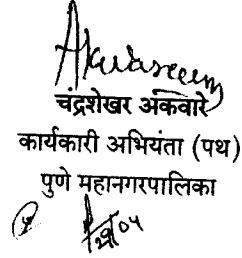 चंद्रशेखर अकवारे
कार्यकारी अभियंता (पथ)
पुणे महानगरपालिका